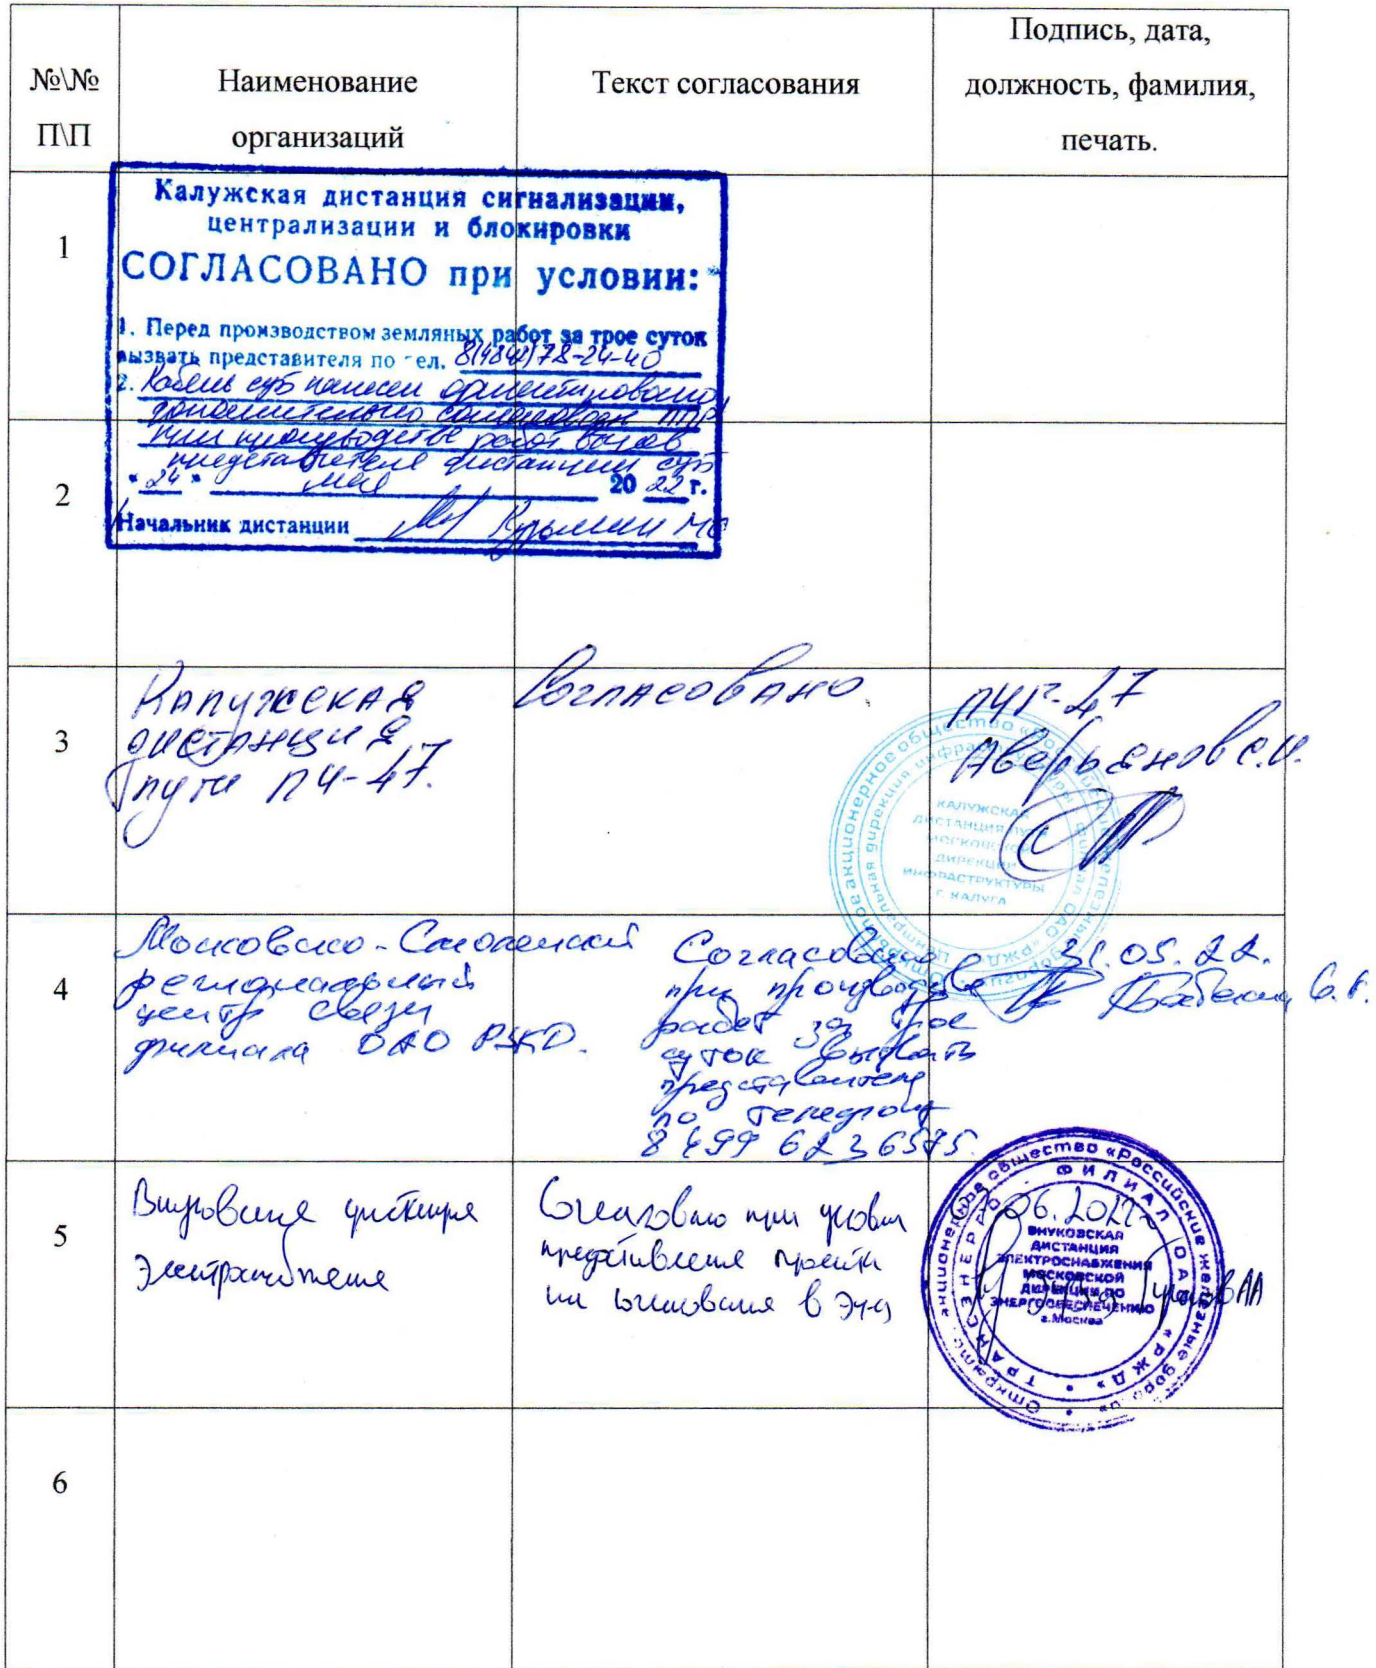 №\№ П\П
Наименование организаций
Текст согласования
Подпись, дата, должность, фамилия, печать.
1
Калужская дистанция сигнализации,
централизации и блокировки
СОГЛАСОВАНО при условии:
1. Перед производством земляных работ за трое суток
вызвать представителя по тел. 8(4842)78-24-40
2. Кабель сцб нанесен ориентировочно
дополнительно согласовать ППР
при производстве работ вызов
представителя дистанции сцб
"24" мая 2022 г.
Начальник дистанции
2
3
Калужская
дистанция
пути ПЧ-47.
Согласовано.
ПЧГ-47
Аверьянов С.И.
Открытое акционерное общество «Российские железные дороги»
Центральная дирекция инфраструктуры филиал ОАО «РЖД»
КАЛУЖСКАЯ
ДИСТАНЦИЯ ПУТИ
МОСКОВСКОЙ
ДИРЕКЦИИ
ИНФРАСТРУКТУРЫ
Г. КАЛУГА
4
Московско-Смоленский
региональный
центр связи
филиала ОАО РЖД.
Согласовано
при производстве
работ за трое
суток вызвать
представителя
по телефону
8 499 6236575.
31.05.22.
5
Внуковская дистанция
Электроснабжения
Согласовано при условии
предоставления проекта
на согласования в ЭЧ-9
06.2022
Открытое акционерное общество «Российские железные дороги»
ТРАНСЭНЕРГО ФИЛИАЛ ОАО «РЖД»
ВНУКОВСКАЯ
ДИСТАНЦИЯ
ЭЛЕКТРОСНАБЖЕНИЯ
МОСКОВСКОЙ
ДИРЕКЦИИ ПО
ЭНЕРГООБЕСПЕЧЕНИЮ
г.Москва
6